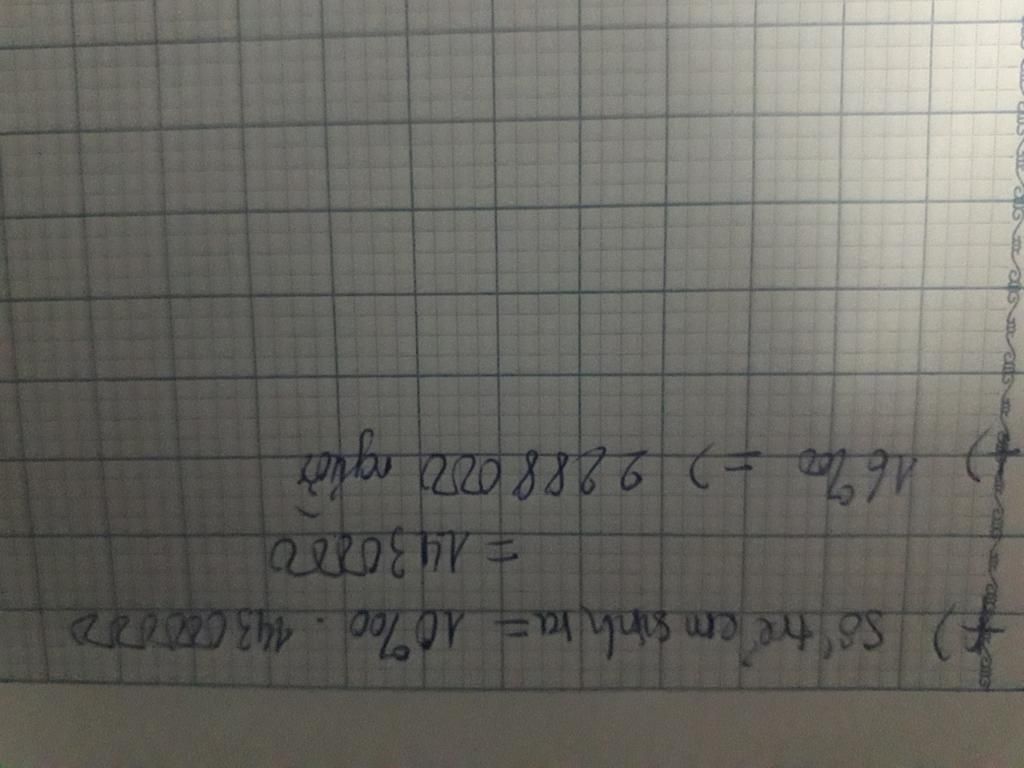 +) Số trẻ em sinh ra = 10‰ . 143000000
= 1430000
+) 16‰ => 2288000 người